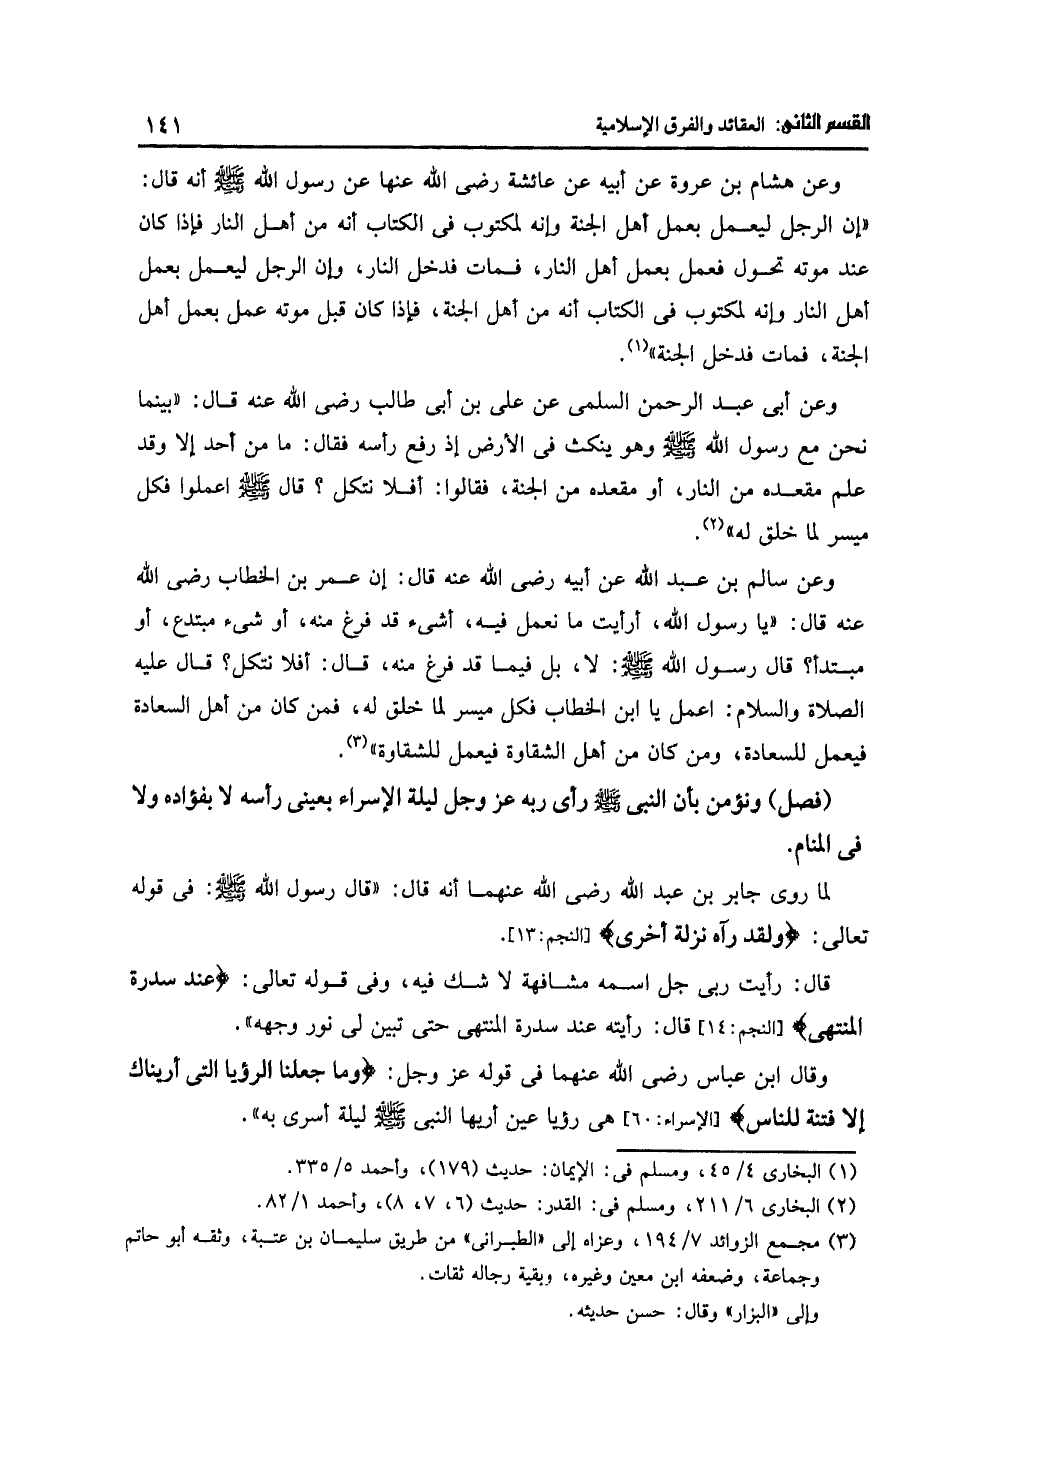 القسم الثانى: العقائد والفرق الإسلامية ١٤١
وعن هشام بن عروة عن أبيه عن عائشة رضى الله عنها عن رسول الله ﷺ أنه قال:
«إن الرجل ليعمل بعمل أهل الجنة وإنه لمكتوب فى الكتاب أنه من أهل النار فإذا كان
عند موته تحول فعمل بعمل أهل النار، فمات فدخل النار، وإن الرجل ليعمل بعمل
أهل النار وإنه لمكتوب فى الكتاب أنه من أهل الجنة، فإذا كان قبل موته عمل بعمل أهل
الجنة، فمات فدخل الجنة»(١).
وعن أبى عبد الرحمن السلمى عن على بن أبى طالب رضى الله عنه قال: «بينما
نحن مع رسول الله ﷺ وهو ينكث فى الأرض إذ رفع رأسه فقال: ما من أحد إلا وقد
علم مقعده من النار، أو مقعده من الجنة، فقالوا: أفلا نتكل ؟ قال ﷺ اعملوا فكل
ميسر لما خلق له»(٢).
وعن سالم بن عبد الله عن أبيه رضى الله عنه قال: إن عمر بن الخطاب رضى الله
عنه قال: «يا رسول الله، أرأيت ما نعمل فيه، أشىء قد فرغ منه، أو شىء مبتدع، أو
مبتدأ؟ قال رسول الله ﷺ: لا، بل فيما قد فرغ منه، قال: أفلا نتكل؟ قال عليه
الصلاة والسلام: اعمل يا ابن الخطاب فكل ميسر لما خلق له، فمن كان من أهل السعادة
فيعمل للسعادة، ومن كان من أهل الشقاوة فيعمل للشقاوة»(٣).
(فصل) ونؤمن بأن النبى ﷺ رأى ربه عز وجل ليلة الإسراء بعينى رأسه لا بفؤاده ولا
فى المنام.
لما روى جابر بن عبد الله رضى الله عنهما أنه قال: «قال رسول الله ﷺ: فى قوله
تعالى: ﴿ولقد رآه نزلة أخرى﴾ [النجم:١٣].
قال: رأيت ربى جل اسمه مشافهة لا شك فيه، وفى قوله تعالى: ﴿عند سدرة
المنتهى﴾ [النجم:١٤] قال: رأيته عند سدرة المنتهى حتى تبين لى نور وجهه».
وقال ابن عباس رضى الله عنهما فى قوله عز وجل: ﴿وما جعلنا الرؤيا التى أريناك
إلا فتنة للناس﴾ [الإسراء:٦٠] هى رؤيا عين أريها النبى ﷺ ليلة أسرى به».
(١) البخارى ٤/ ٤٥، ومسلم فى: الإيمان: حديث (١٧٩)، وأحمد ٥/ ٣٣٥.
(٢) البخارى ٦/ ٢١١، ومسلم فى: القدر: حديث (٦، ٧، ٨)، وأحمد ١/ ٨٢.
(٣) مجمع الزوائد ٧/ ١٩٤، وعزاه إلى «الطبرانى» من طريق سليمان بن عتبة، وثقه أبو حاتم
وجماعة، وضعفه ابن معين وغيره، وبقية رجاله ثقات.
وإلى «البزار» وقال: حسن حديثه.